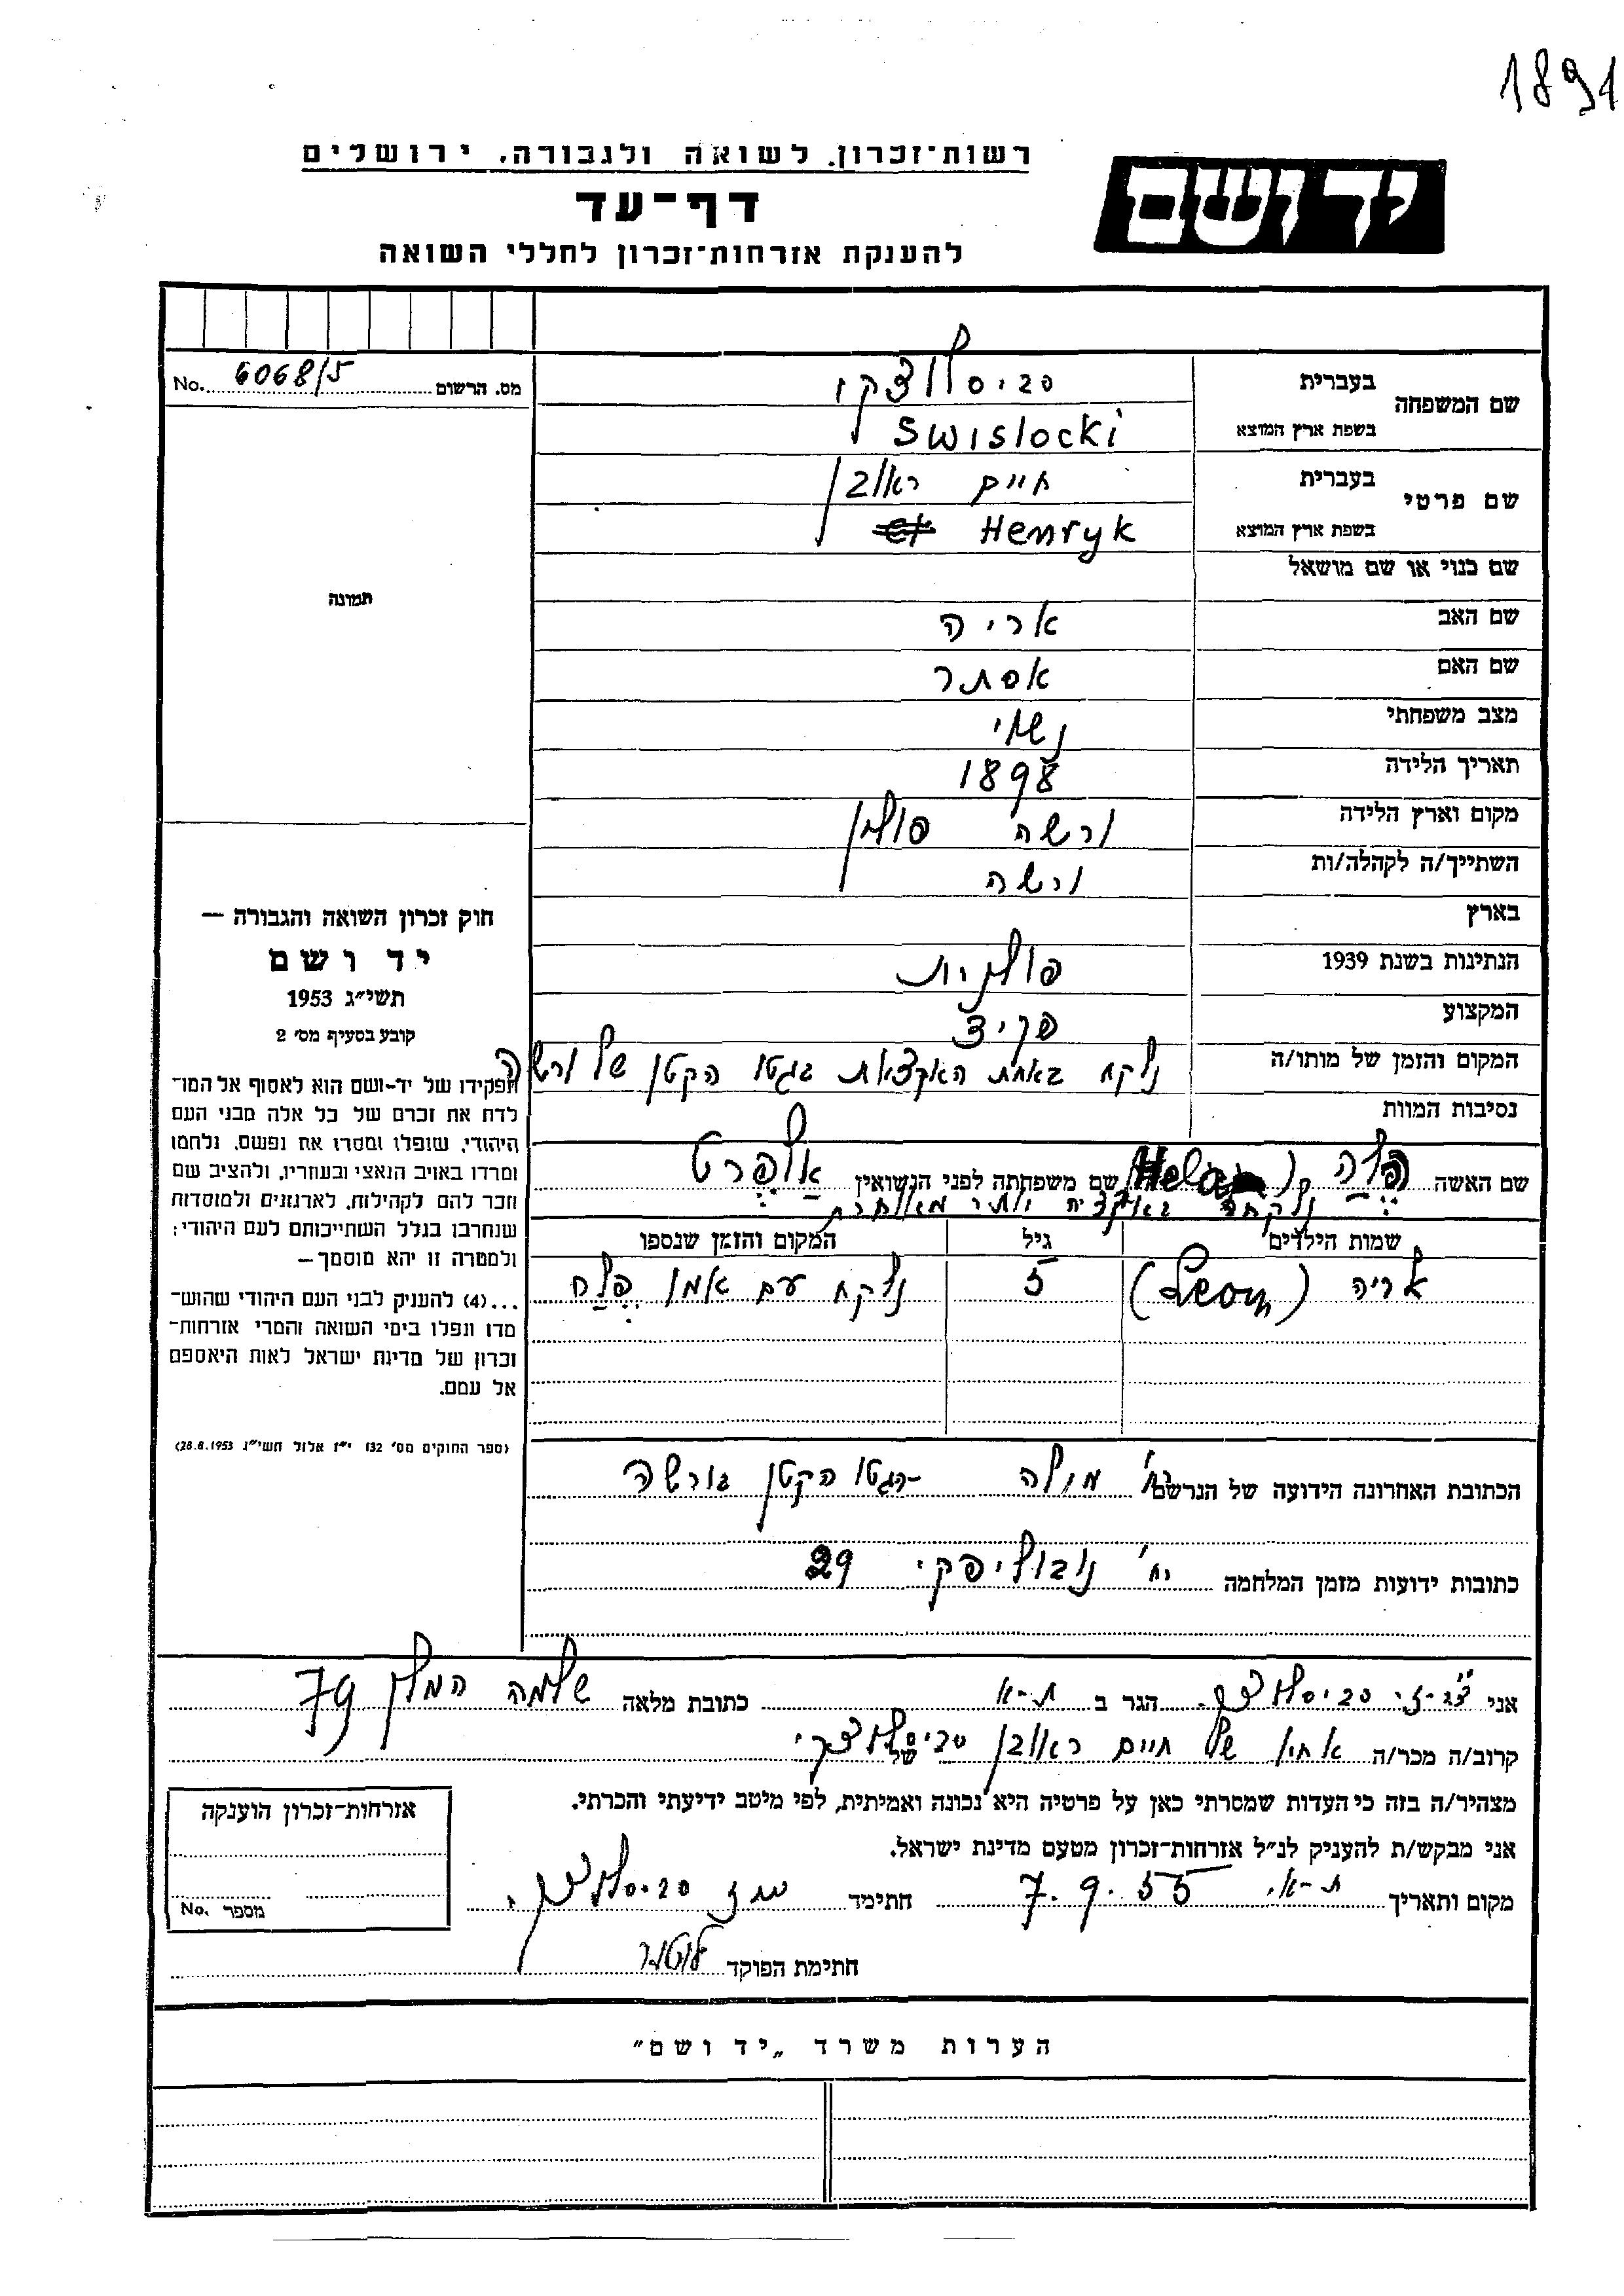 1891
רשות־זכרון לשואה ולגבורה, ירושלים
יד ושם
דף־עד
להענקת אזרחות־זכרון לחללי השואה
No. 6068/5 מס. הרשום
שם המשפחה
בעברית סביסלוצקי
בשפת ארץ המוצא Swislocki
שם פרטי
בעברית חיים ראובן
בשפת ארץ המוצא Henryk
שם כנוי או שם מושאל
תמונה
שם האב אריה
שם האם אסתר
מצב משפחתי נשוי
תאריך הלידה 1898
מקום וארץ הלידה ורשה פולין
השתייך/ה לקהלה/ות ורשה
בארץ
הנתינות בשנת 1939 פולנית
המקצוע פקיד
המקום והזמן של מותו/ה נלקח באחת האקצאות בגטו הקטן של ורשה
נסיבות המוות
חוק זכרון השואה והגבורה —
יד ושם
תשי״ג 1953
קובע בסעיף מס׳ 2
תפקידו של יד-ושם הוא לאסוף אל המו־
לדת את זכרם של כל אלה מבני העם
היהודי, שנפלו ומסרו את נפשם, נלחמו
ומרדו באויב הנאצי ובעוזריו, ולהציב שם
וזכר להם לקהילות, לארגונים ולמוסדות
שנחרבו בגלל השתייכותם לעם היהודי;
ולמטרה זו יהא מוסמך —
...(4) להענק לבני העם היהודי שהוש־
מדו ונפלו בימי השואה והמרי אזרחות־
זכרון של מדינת ישראל לאות היאספם
אל עמם.
(ספר החוקים מס׳ 132 י״ז אלול תשי״ג 28.8.1953)
שם האשה הלה שם משפחתה לפני הנשואין אלפרט
נלקחה באקציה יותר מאוחרת
שמות הילדים גיל המקום והזמן שנספו
אריה (Leon) 5 נלקח עם אמו הלה
הכתובת האחרונה הידועה של הנרשם רח׳ מילה הגטו הקטן בורשה
כתובות ידועות מזמן המלחמה רח׳ נובוליפקי 29
אני סביסלוצקי הגר ב ת-א כתובת מלאה שלמה המלך 79
קרוב/ה מכר/ה אחיו של חיים ראובן סביסלוצקי של
מצהיר/ה בזה כי העדות שמסרתי כאן על פרטיה היא נכונה ואמיתית, לפי מיטב ידיעתי והכרתי.
אני מבקש/ת להעניק לנ״ל אזרחות־זכרון מטעם מדינת ישראל.
מקום ותאריך ת-א 7.9.55 חתימה סביסלוצקי
חתימת הפוקד
אזרחות־זכרון הוענקה
No. מספר
הערות משרד „יד ושם״